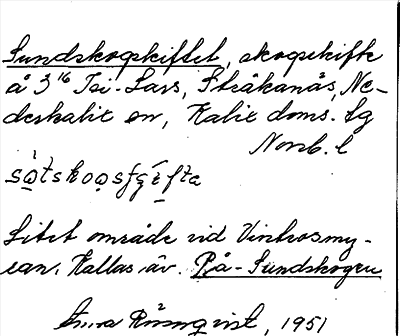 Sundskogskiftet, skogsskifte
å 3¹⁶ Isi-Lars, Stråkanäs, Ne-
derkalix sn, Kalix doms. lg
Norrb. l

Litet område vid Vinbrosmy-
ran. Kallas äv. På-Sundskogen
Rosenqvist, 1951